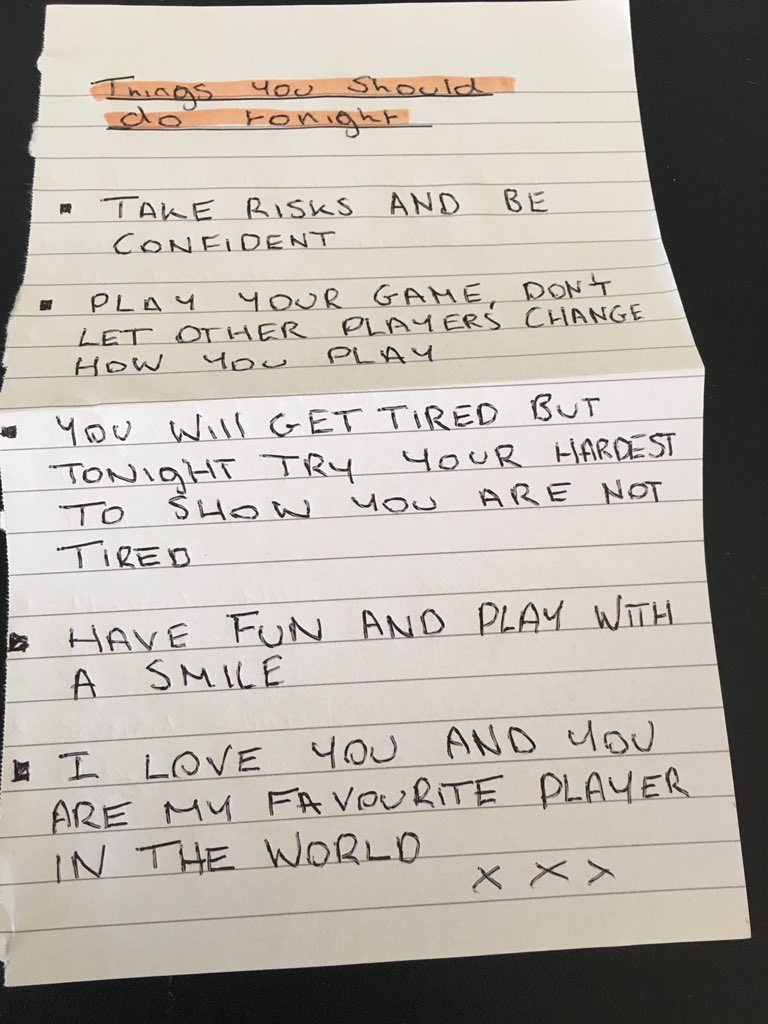 Things you should
do tonight
▪ TAKE RISKS AND BE
CONFIDENT
▪ PLAY YOUR GAME, DON't
LET OTHER PLAYERS CHANGE
HOW YOU PLAY
▪ YOU Will GET TIRED BUT
TONIGHT TRY YOUR HARDEST
TO SHOW YOU ARE NOT
TIRED
▪ HAVE FUN AND PLAY WITH
A SMILE
▪ I LOVE YOU AND YOU
ARE MY FAVOURITE PLAYER
IN THE WORLD
x x x